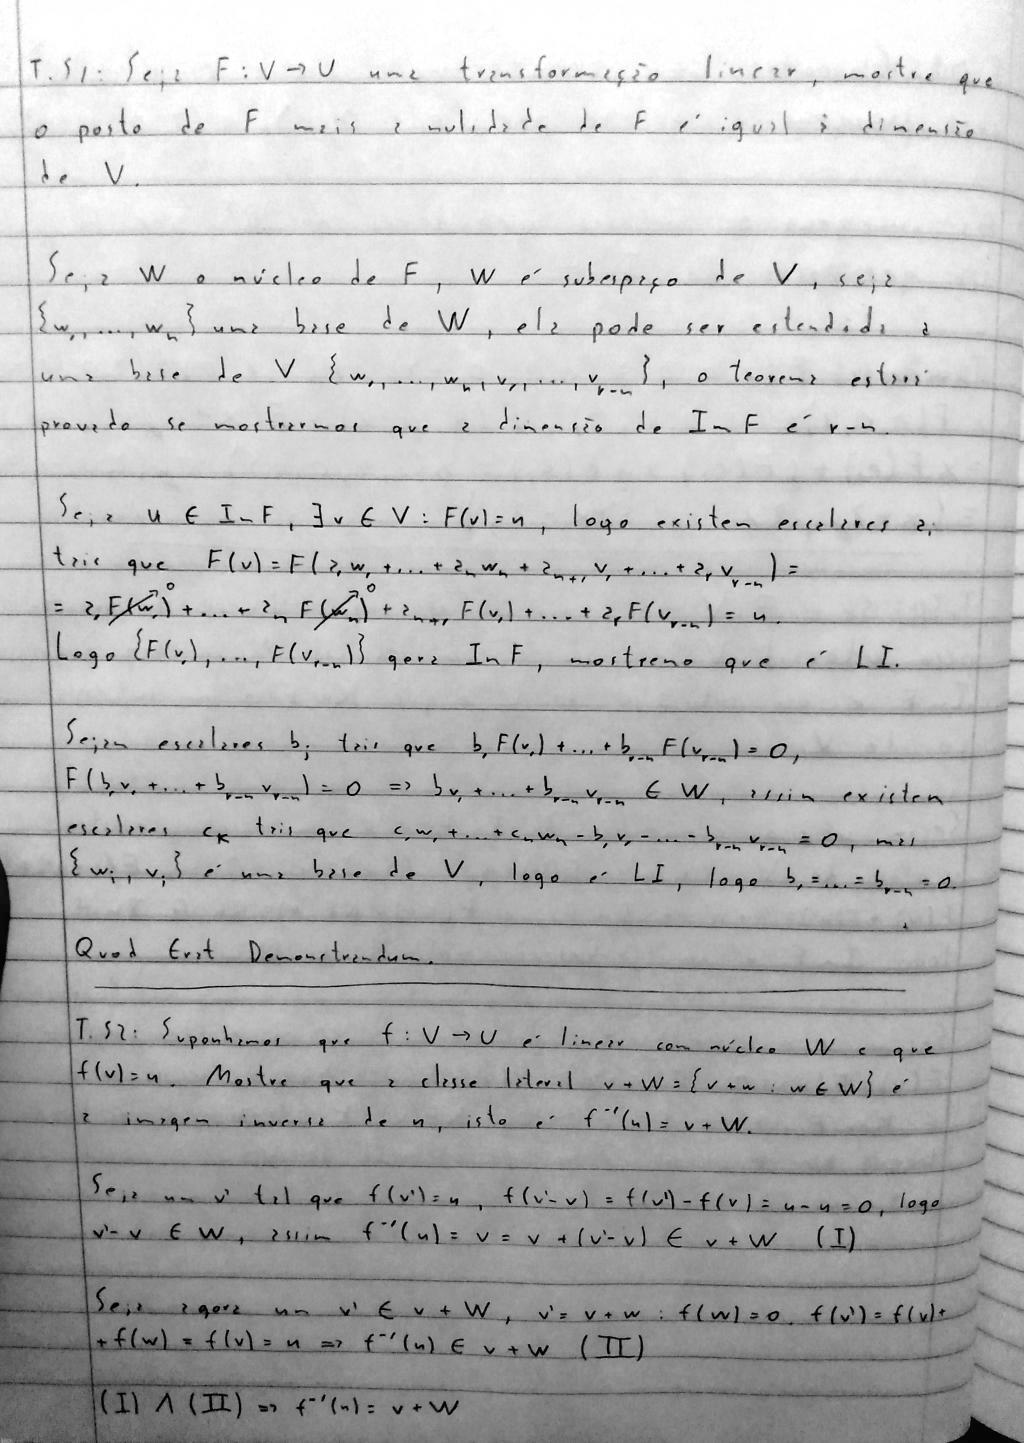 T.51: Seja F : V → U uma transformação linear, mostre que
o posto de F mais a nulidade de F é igual à dimensão
de V.
Seja W o núcleo de F, W é subespaço de V, seja
{w₁, ..., wₙ} uma base de W, ela pode ser estendida a
uma base de V {w₁, ..., wₙ, v₁, ..., vᵣ₋ₙ}, o teorema estará
provado se mostrarmos que a dimensão de Im F é r-n.
Seja u ∈ Im F, ∃ v ∈ V : F(v) = u, logo existem escalares aᵢ
tais que F(v) = F(a₁w₁ + ... + aₙwₙ + aₙ₊₁v₁ + ... + aᵣvᵣ₋ₙ) =
= a₁F(w₁)⁰ + ... + aₙF(wₙ)⁰ + aₙ₊₁F(v₁) + ... + aᵣF(vᵣ₋ₙ) = u.
Logo {F(v₁), ..., F(vᵣ₋ₙ)} gera Im F, mostremo que é LI.
Sejam escalares bⱼ tais que b₁F(v₁) + ... + bᵣ₋ₙF(vᵣ₋ₙ) = 0,
F(b₁v₁ + ... + bᵣ₋ₙvᵣ₋ₙ) = 0 => bv₁ + ... + bᵣ₋ₙvᵣ₋ₙ ∈ W, assim existem
escalares cₖ tais que c₁w₁ + ... + cₙwₙ - b₁v₁ - ... - bᵣ₋ₙvᵣ₋ₙ = 0, mas
{wᵢ, vⱼ} é uma base de V, logo é LI, logo b₁ = ... = bᵣ₋ₙ = 0.
Quod Erat Demonstrandum.
T.52: Suponhamos que f : V → U é linear com núcleo W e que
f(v) = u. Mostre que a classe lateral v + W = {v + w : w ∈ W} é
a imagem inversa de u, isto é f⁻¹(u) = v + W.
Seja um v' tal que f(v') = u, f(v'-v) = f(v') - f(v) = u - u = 0, logo
v'-v ∈ W, assim f⁻¹(u) = v = v + (v'-v) ∈ v + W (I)
Seja agora um v' ∈ v + W, v' = v + w : f(w) = 0. f(v') = f(v) +
+ f(w) = f(v) = u => f⁻¹(u) ∈ v + W (II)
(I) ∧ (II) => f⁻¹(u) = v + W